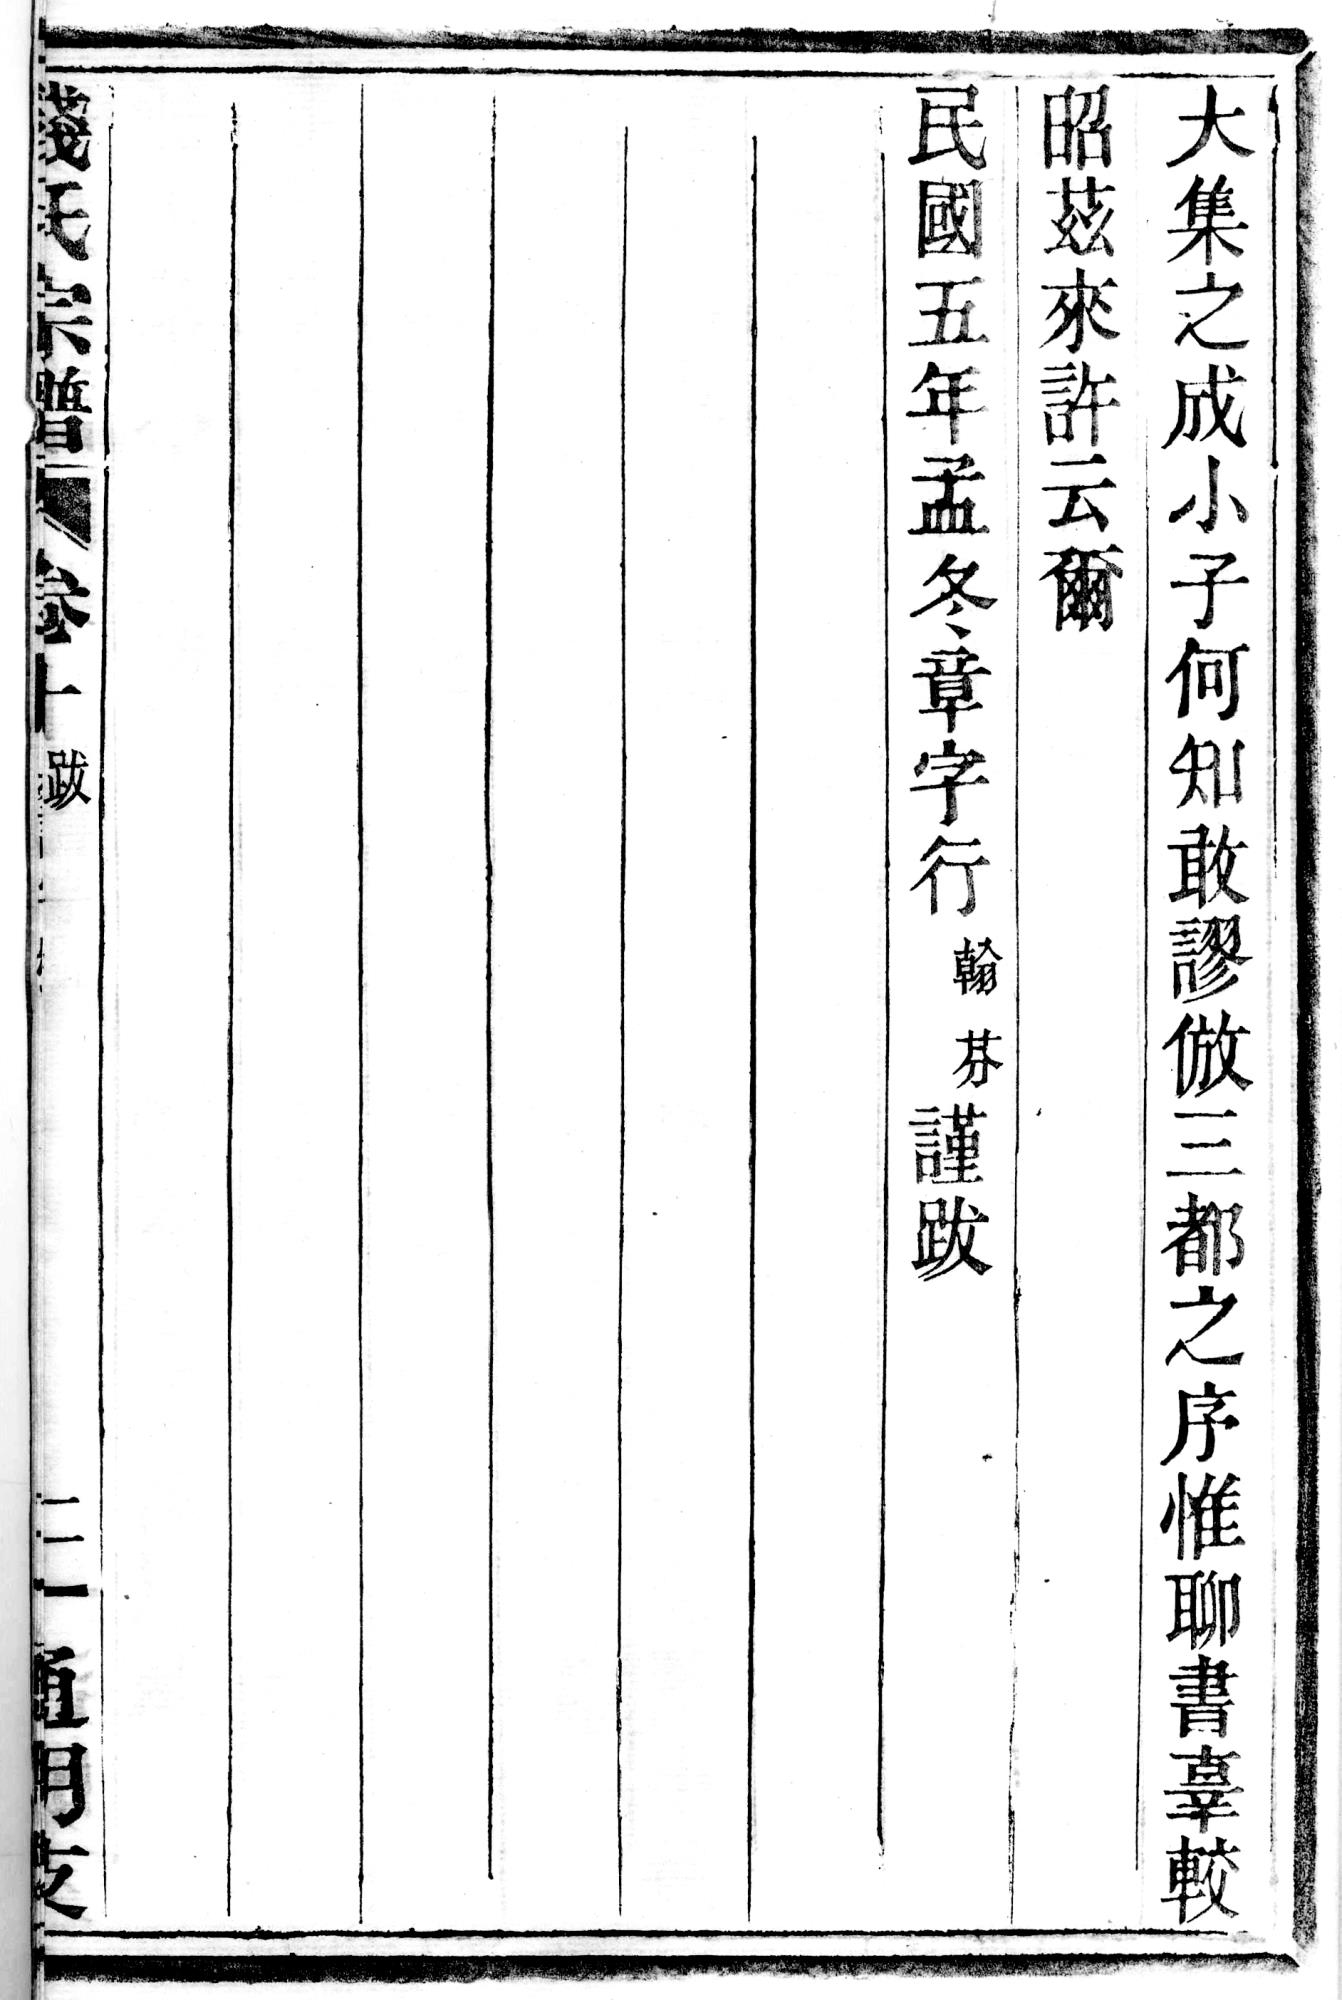 大集之成小子何知敢謬倣三都之序惟聊書辜較
昭茲來許云爾
民國五年孟冬章字行翰芬謹跋
錢氏宗譜 卷十 跋 二 通明支